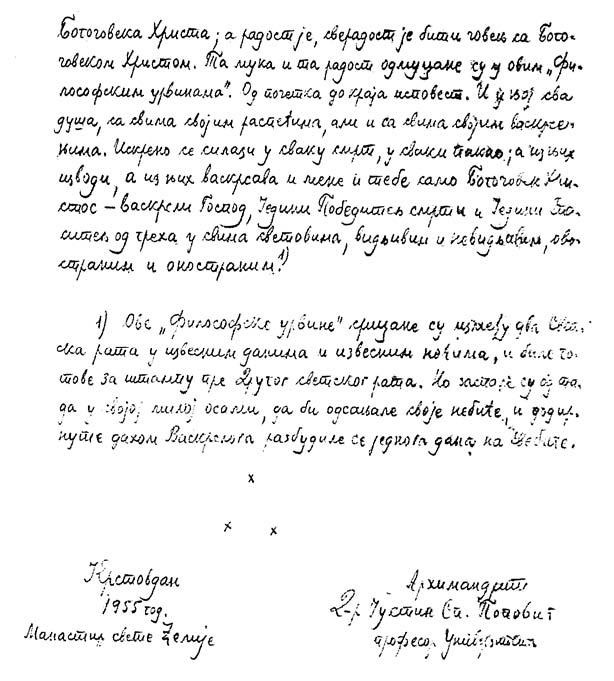 Богочовека Христа; а радост је, сверадост је бити човек са Бого-
човеком Христом. Та мука и та радост одмуцане су у овим „Фи-
лософским урвинама“. Од почетка до краја исповест. И у њој сва
душа, са свима својим распећима, али и са свима својим васкрсе-
њима. Искрено се силази у сваку смрт, у сваки пакао; а из њих
изводи, а из њих васкрсава и мене и тебе само Богочовек Хри-
стос – васкрсли Господ, Једини Победитељ смрти и Једини Спа-
ситељ од греха у свима световима, видљивим и невидљивим, ово-
страним и оностраним.¹⁾
1) Ове „Философске урвине“ срицане су између два Свет-
ска рата у извесним данима и извесним ноћима, и биле го-
тове за штампу пре Другог светског рата. Но заспале су од та-
да у својој милој осами, да би одсањале своје небиће, и додир-
нуте дахом Васкрслога разбудиле се једнога дана на свебиће.
x
x x
Крстовдан
1955 год.
Манастир свете Ћелије
Архимандрит
Д-р Јустин Сп. Поповић
професор Универзитета